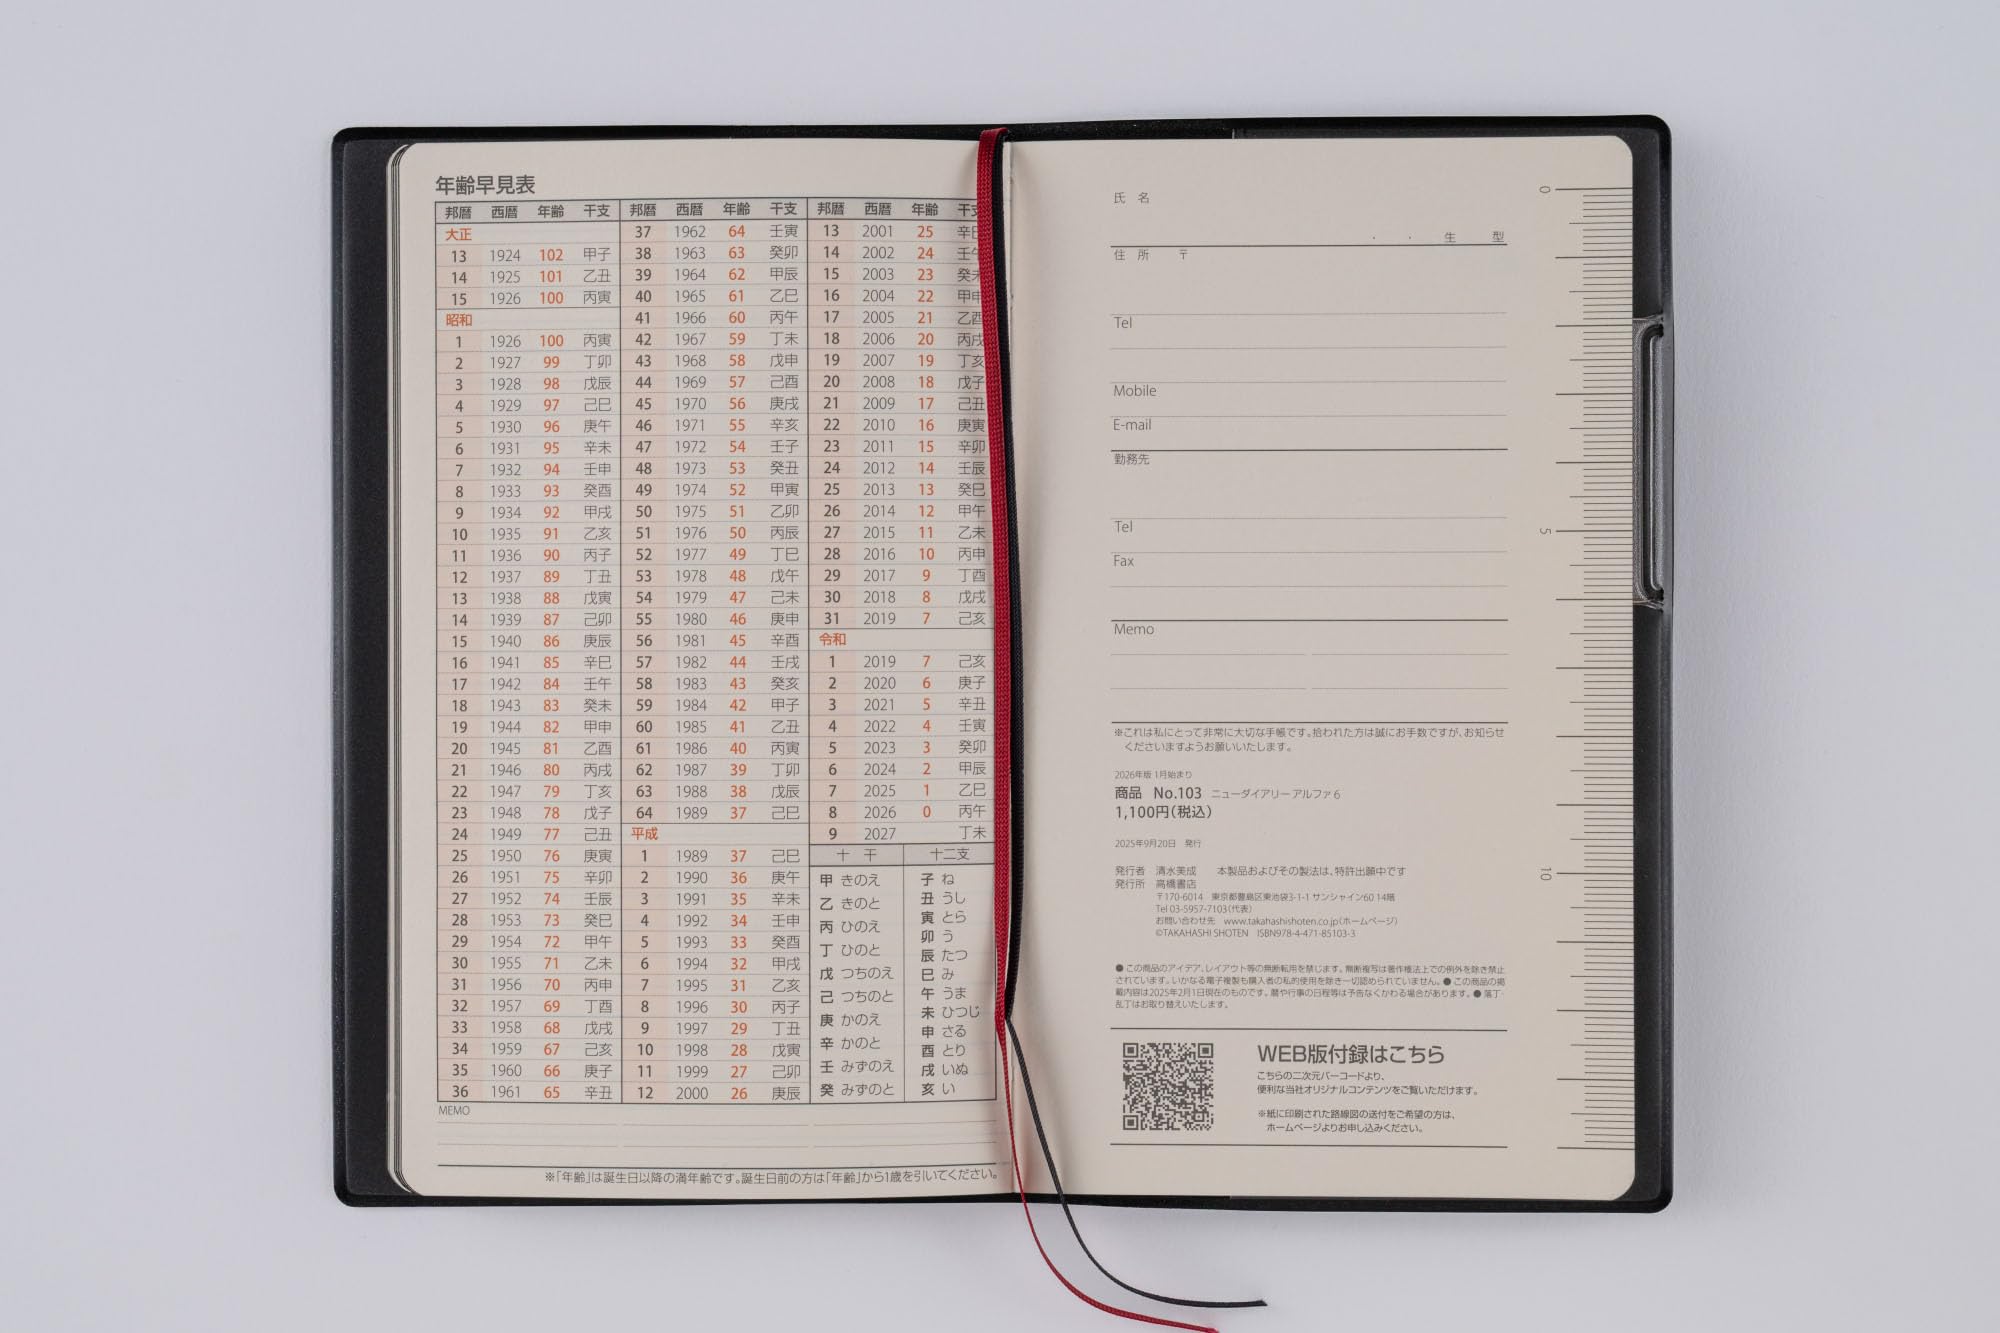 年齢早見表
邦暦 西暦 年齢 干支
大正
13 1924 102 甲子
14 1925 101 乙丑
15 1926 100 丙寅
昭和
1 1926 100 丙寅
2 1927 99 丁卯
3 1928 98 戊辰
4 1929 97 己巳
5 1930 96 庚午
6 1931 95 辛未
7 1932 94 壬申
8 1933 93 癸酉
9 1934 92 甲戌
10 1935 91 乙亥
11 1936 90 丙子
12 1937 89 丁丑
13 1938 88 戊寅
14 1939 87 己卯
15 1940 86 庚辰
16 1941 85 辛巳
17 1942 84 壬午
18 1943 83 癸未
19 1944 82 甲申
20 1945 81 乙酉
21 1946 80 丙戌
22 1947 79 丁亥
23 1948 78 戊子
24 1949 77 己丑
25 1950 76 庚寅
26 1951 75 辛卯
27 1952 74 壬辰
28 1953 73 癸巳
29 1954 72 甲午
30 1955 71 乙未
31 1956 70 丙申
32 1957 69 丁酉
33 1958 68 戊戌
34 1959 67 己亥
35 1960 66 庚子
36 1961 65 辛丑
邦暦 西暦 年齢 干支
37 1962 64 壬寅
38 1963 63 癸卯
39 1964 62 甲辰
40 1965 61 乙巳
41 1966 60 丙午
42 1967 59 丁未
43 1968 58 戊申
44 1969 57 己酉
45 1970 56 庚戌
46 1971 55 辛亥
47 1972 54 壬子
48 1973 53 癸丑
49 1974 52 甲寅
50 1975 51 乙卯
51 1976 50 丙辰
52 1977 49 丁巳
53 1978 48 戊午
54 1979 47 己未
55 1980 46 庚申
56 1981 45 辛酉
57 1982 44 壬戌
58 1983 43 癸亥
59 1984 42 甲子
60 1985 41 乙丑
61 1986 40 丙寅
62 1987 39 丁卯
63 1988 38 戊辰
64 1989 37 己巳
平成
1 1989 37 己巳
2 1990 36 庚午
3 1991 35 辛未
4 1992 34 壬申
5 1993 33 癸酉
6 1994 32 甲戌
7 1995 31 乙亥
8 1996 30 丙子
9 1997 29 丁丑
10 1998 28 戊寅
11 1999 27 己卯
12 2000 26 庚辰
邦暦 西暦 年齢 干支
13 2001 25 辛巳
14 2002 24 壬午
15 2003 23 癸未
16 2004 22 甲申
17 2005 21 乙酉
18 2006 20 丙戌
19 2007 19 丁亥
20 2008 18 戊子
21 2009 17 己丑
22 2010 16 庚寅
23 2011 15 辛卯
24 2012 14 壬辰
25 2013 13 癸巳
26 2014 12 甲午
27 2015 11 乙未
28 2016 10 丙申
29 2017 9 丁酉
30 2018 8 戊戌
31 2019 7 己亥
令和
1 2019 7 己亥
2 2020 6 庚子
3 2021 5 辛丑
4 2022 4 壬寅
5 2023 3 癸卯
6 2024 2 甲辰
7 2025 1 乙巳
8 2026 0 丙午
9 2027 丁未
十干
甲 きのえ
乙 きのと
丙 ひのえ
丁 ひのと
戊 つちのえ
己 つちのと
庚 かのえ
辛 かのと
壬 みずのえ
癸 みずのと
十二支
子 ね
丑 うし
寅 とら
卯 う
辰 たつ
巳 み
午 うま
未 ひつじ
申 さる
酉 とり
戌 いぬ
亥 い
MEMO
※「年齢」は誕生日以降の満年齢です。誕生日前の方は「年齢」から1歳を引いてください。
氏 名
・ ・ 生 型
住 所 〒
Tel
Mobile
E-mail
勤務先
Tel
Fax
Memo
※これは私にとって非常に大切な手帳です。拾われた方は誠にお手数ですが、お知らせ
くださいますようお願いいたします。
2026年版 1月始まり
商品 No.103 ニューダイアリー アルファ 6
1,100円(税込)
2025年9月20日 発行
発行者 清水美成 本製品およびその製法は、特許出願中です
発行所 高橋書店
〒170-6014 東京都豊島区東池袋3-1-1 サンシャイン60 14階
Tel 03-5957-7103(代表)
お問い合わせ先 www.takahashishoten.co.jp(ホームページ)
©TAKAHASHI SHOTEN ISBN978-4-471-85103-3
● この商品のアイデア、レイアウト等の無断転用を禁じます。無断複写は著作権法上での例外を除き禁止
されています。いかなる電子複製も購入者の私的使用を除き一切認められていません。● この商品の掲
載内容は2025年2月1日現在のものです。暦や行事の日程等は予告なくかわる場合があります。● 落丁・
乱丁はお取り替えいたします。
WEB版付録はこちら
こちらの二次元バーコードより、
便利な当社オリジナルコンテンツをご覧いただけます。
※紙に印刷された路線図の送付をご希望の方は、
ホームページよりお申し込みください。
0
5
10